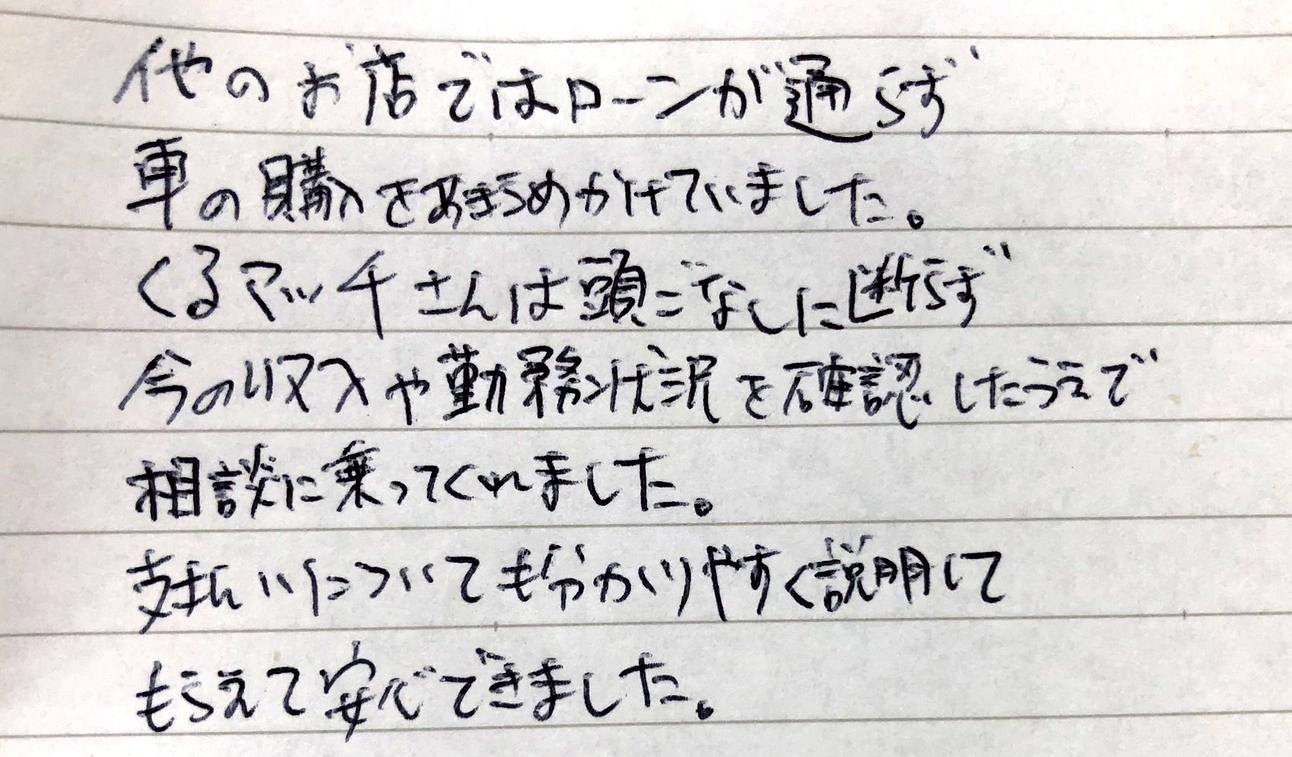 他のお店ではローンが通らず
車の購入をあきらめかけていました。
くるマッチさんは頭ごなしに断らず
今の収入や勤務状況を確認したうえで
相談に乗ってくれました。
支払いについても分かりやすく説明して
もらえて安心できました。